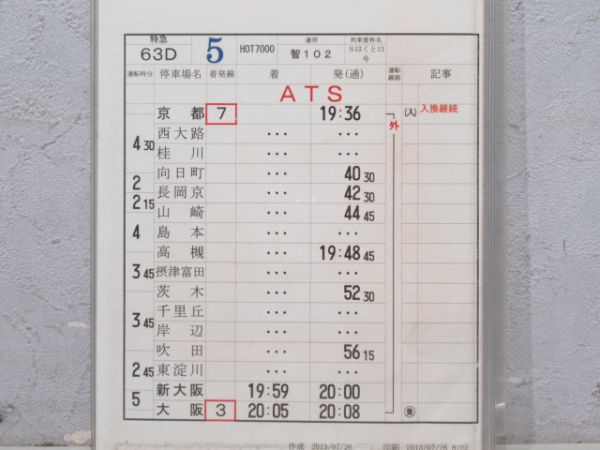 特急 運用 列車愛称名
63D 5 HOT7000 智102 Sはくと13号
運転時分 停車場名 着発線 着 発(通) 記事
ATS
京都 7 19:36 (入) 入換継続
外
西大路 ・・・ ・・・
4 30 桂川 ・・・ ・・・
向日町 ・・・ 40 30
2 長岡京 ・・・ 42 30
2 15 山崎 ・・・ 44 45
4 島本 ・・・ ・・・
高槻 ・・・ 19:48 45
3 45 摂津富田 ・・・ ・・・
茨木 ・・・ 52 30
3 45 千里丘 ・・・ ・・・
岸辺 ・・・ ・・・
吹田 ・・・ 56 15
2 45 東淀川 ・・・ ・・・
5 新大阪 19:59 20:00
大阪 3 20:05 20:08
作成 2013/07/26 印刷 2013/07/26